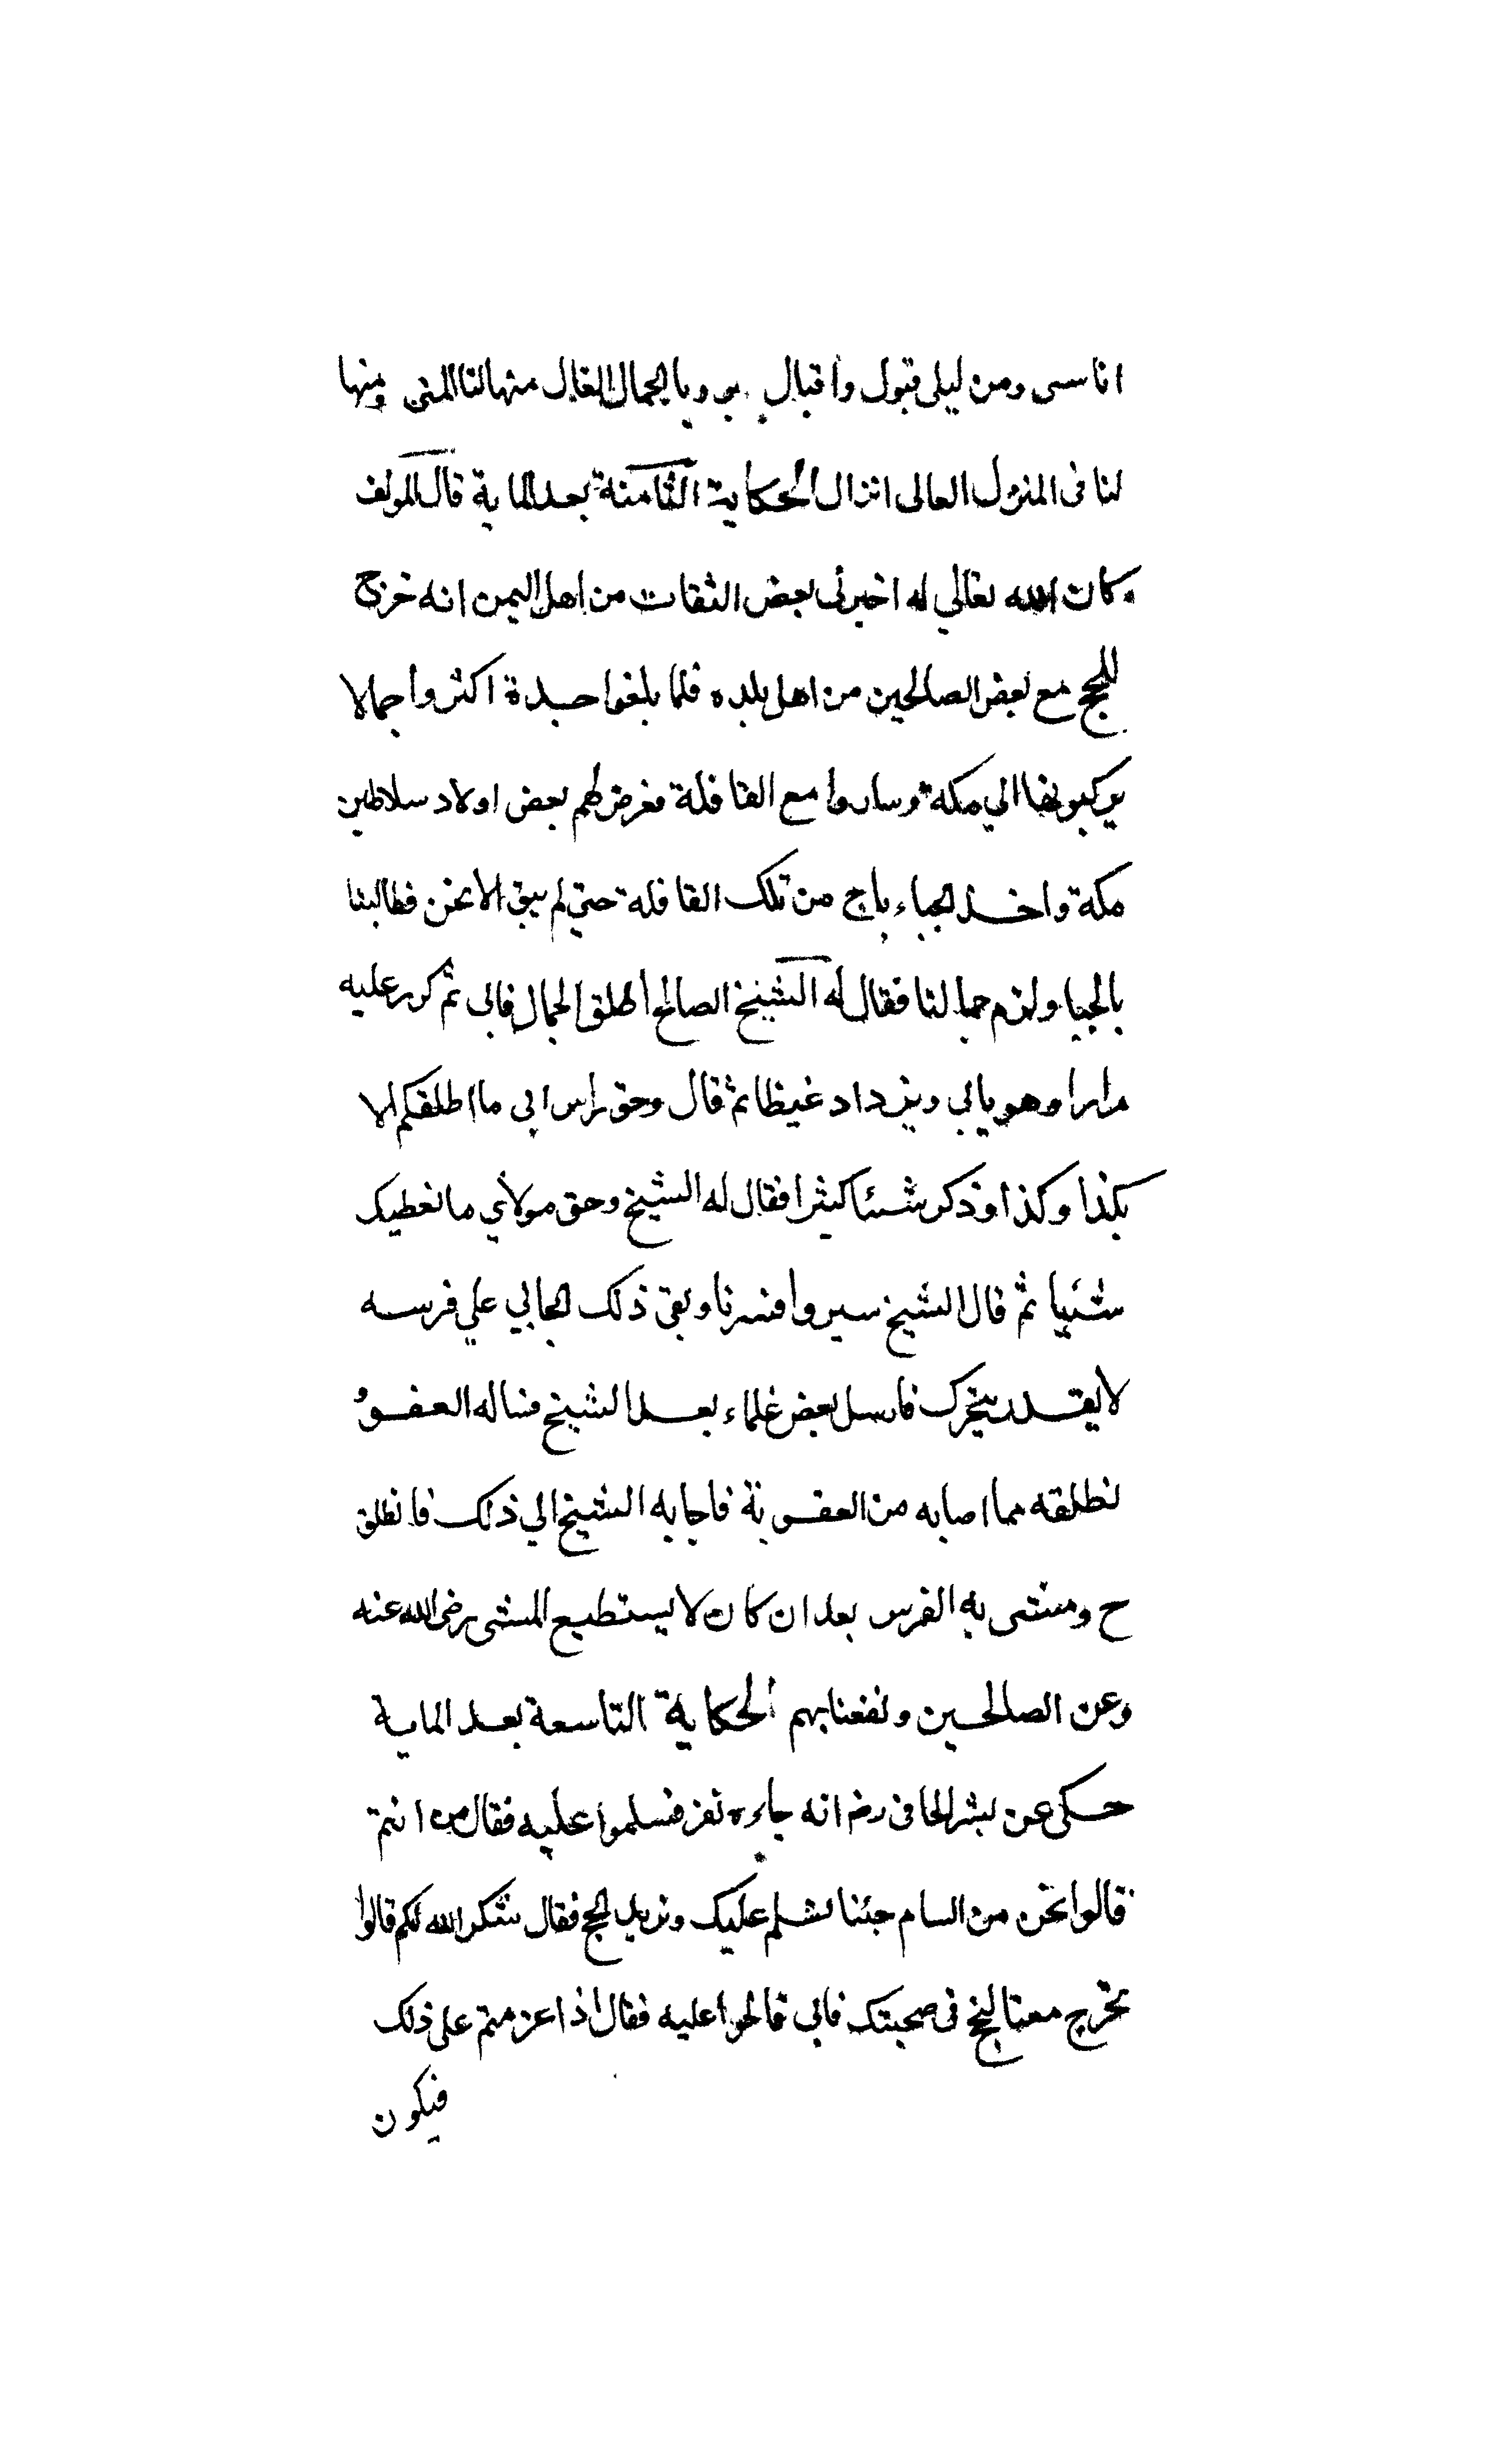 اناسى ومن ليلى قبول واقبال وبالجمال الغال منها لنا المنى ومنها
لنا فى المنزل العالى انزال الحكاية الثامنة بعد الماية قال المولف
كان الله تعالي له اخبرنى بعض الثقات من اهل اليمن انه خرج
للحج مع بعض الصالحين من اهل بلده فلما بلغوا حدة اكتروا جمالا
يركبونها الي مكة وساروا مع القافلة فعرض لهم بعض اولاد سلاطين
مكة واخذ الجباء من تلك القافلة حتي لم يبق الا نحن فطالبنا
بالجبا ولزم جمالنا فقال له الشيخ الصالح اطلق الجمال فابى ثم كرر عليه
مرارا وهو يابي ويزداد غيظا ثم قال وحق راس ابي ما اطلقكم الا
بكذا وكذا وذكر شئا كثيرا فقال له الشيخ وحق مولاي ما نعطيك
شئيا ثم قال الشيخ سيروا فسرنا وبقى ذلك الجابي علي فرسه
لا يقدر يتحرك فارسل بعض غلماء بعد الشيخ فساله العفو
لنطلقه مما اصابه من العقوبة فاجابه الشيخ الي ذلك فانطلق
ح ومشى به الفرس بعد ان كان لا يستطيع المشى رضى الله عنه
وعن الصالحين ونفعنا بهم الحكاية التاسعة بعد الماية
حكى عن بشر الحافى رضه انه جاءه نفر فسلموا عليه فقال من انتم
قالوا نحن من السام جئنا لنسلم عليك ونريد الحج فقال شكر الله لكم قالوا
تخرج معنا للحج فى صحبتك فابى فالحوا عليه فقال اذا عزمتم على ذلك
فيكون